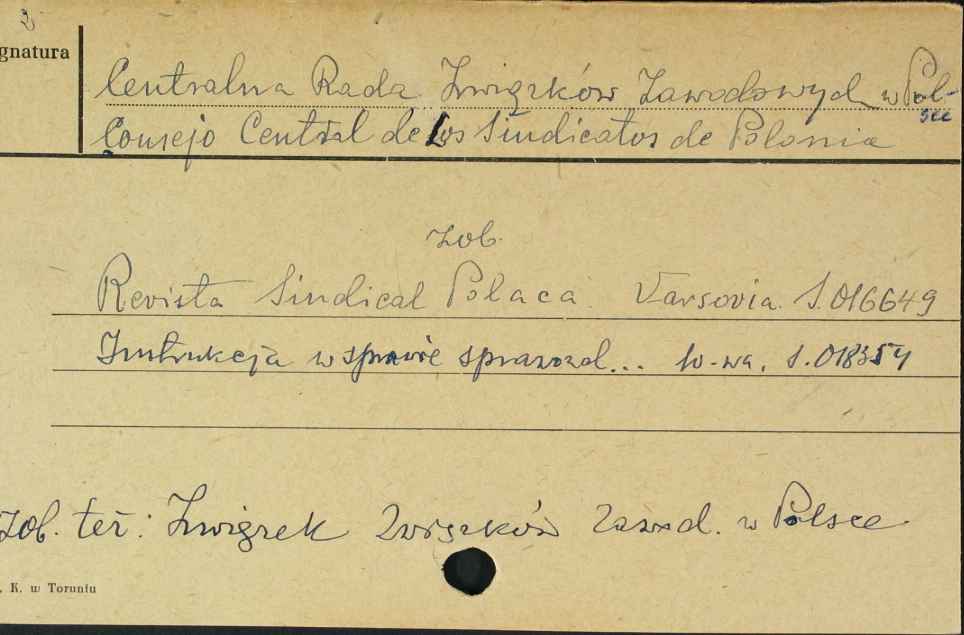 2
gnatura
Centralna Rada Związków Zawodowych w Pol-
sce
Consejo Central de Los Sindicatos de Polonia
zob.
Revista Sindical Polaca. Varsovia. S.016649
Instrukcja w sprawie sprawozd... W-wa. S.018354
zob. też: Związek Związków Zawod. w Polsce
. K. w Toruniu